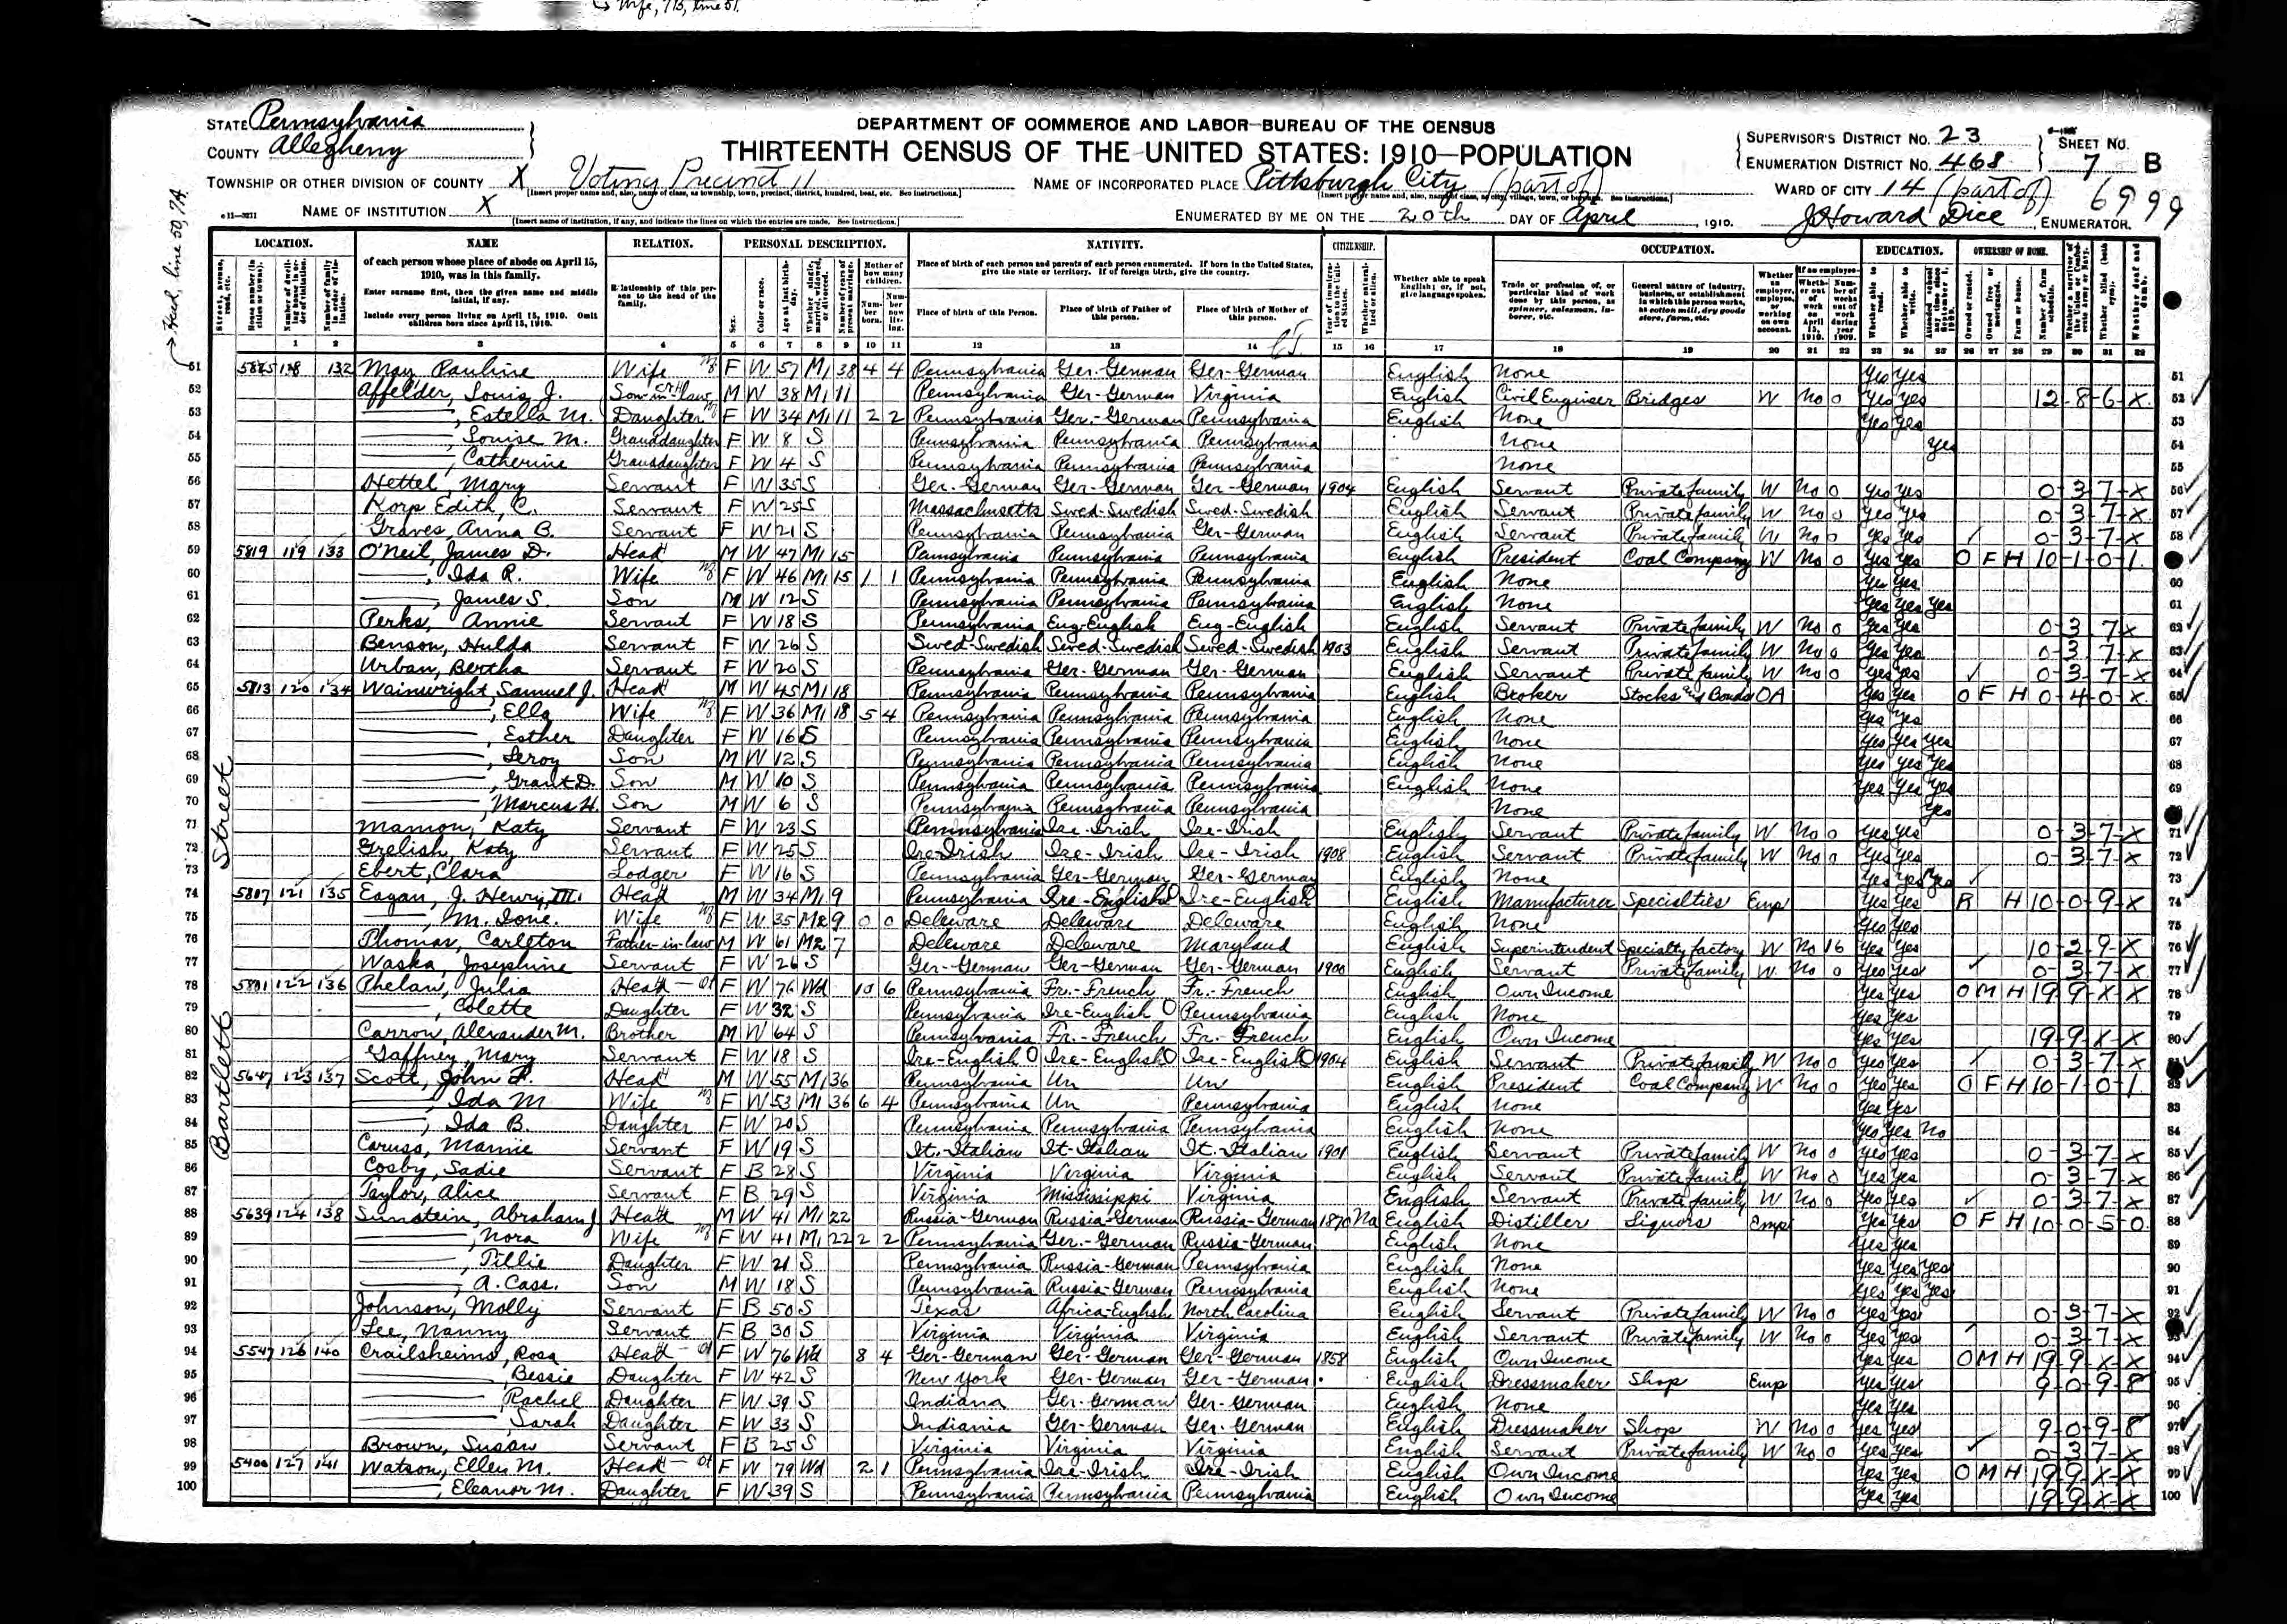 Wife, 7B, line 51.
STATE Pennsylvania
COUNTY Allegheny
DEPARTMENT OF COMMERCE AND LABOR—BUREAU OF THE CENSUS
THIRTEENTH CENSUS OF THE UNITED STATES: 1910—POPULATION
SUPERVISOR'S DISTRICT NO. 23
ENUMERATION DISTRICT NO. 468
SHEET NO. 7 B
TOWNSHIP OR OTHER DIVISION OF COUNTY X Voting Precinct 11
NAME OF INCORPORATED PLACE Pittsburgh City (part of)
WARD OF CITY 14 (part of) 6999
NAME OF INSTITUTION X
ENUMERATED BY ME ON THE 20th DAY OF April, 1910. J. Howard Dice, ENUMERATOR.
Head, line 50, 7A.
LOCATION. NAME RELATION. PERSONAL DESCRIPTION. NATIVITY. CITIZENSHIP. OCCUPATION. EDUCATION. OWNERSHIP OF HOME.
of each person whose place of abode on April 15, 1910, was in this family.
Enter surname first, then the given name and middle initial, if any.
Include every person living on April 15, 1910. Omit children born since April 15, 1910.
Relationship of this person to the head of the family.
Place of birth of each person and parents of each person enumerated. If born in the United States, give the state or territory. If of foreign birth, give the country.
Place of birth of this Person. Place of birth of Father of this person. Place of birth of Mother of this person.
Whether able to speak English; or, if not, give language spoken.
1 2 3 4 5 6 7 8 9 10 11 12 13 14 15 16 17 18 19 20 21 22 23 24 25 26 27 28 29 30 31 32
Bartlett Street
51 5825 118 132 May Pauline Wife F W 57 M1 38 4 4 Pennsylvania Ger-German Ger-German English None Yes Yes 51
52 Affelder, Louis J. Son-in-law M W 38 M1 11 Pennsylvania Ger-German Virginia English Civil Engineer Bridges W No 0 Yes Yes 12-8-6-X 52
53 ——, Estella M. Daughter F W 34 M1 11 2 2 Pennsylvania Ger-German Pennsylvania English None Yes Yes 53
54 ——, Louise M. Granddaughter F W 8 S Pennsylvania Pennsylvania Pennsylvania None Yes 54
55 ——, Catherine Granddaughter F W 4 S Pennsylvania Pennsylvania Pennsylvania None 55
56 Hettel, Mary Servant F W 35 S Ger-German Ger-German Ger-German 1904 English Servant Private family W No 0 Yes Yes 0-3-7-X 56
57 Korp Edith, C. Servant F W 25 S Massachusetts Swed-Swedish Swed-Swedish English Servant Private family W No 0 Yes Yes 0-3-7-X 57
58 Graves, Anna B. Servant F W 21 S Pennsylvania Pennsylvania Ger-German English Servant Private family W No 0 Yes Yes 0-3-7-X 58
59 5819 119 133 O'Neil, James D. Head M W 47 M1 15 Pennsylvania Pennsylvania Pennsylvania English President Coal Company W No 0 Yes Yes O F H 10-1-0-1
60 ——, Ida R. Wife F W 46 M1 15 1 1 Pennsylvania Pennsylvania Pennsylvania English None Yes Yes 60
61 ——, James S. Son M W 12 S Pennsylvania Pennsylvania Pennsylvania English None Yes Yes Yes 61
62 Perks, Annie Servant F W 18 S Pennsylvania Eng-English Eng-English English Servant Private family W No 0 Yes Yes 0-3-7-X 62
63 Benson, Hulda Servant F W 26 S Swed-Swedish Swed-Swedish Swed-Swedish 1903 English Servant Private family W No 0 Yes Yes 0-3-7-X 63
64 Urban, Bertha Servant F W 20 S Pennsylvania Ger-German Ger-German English Servant Private family W No 0 Yes Yes 0-3-7-X 64
65 5813 120 134 Wainwright, Samuel J. Head M W 45 M1 18 Pennsylvania Pennsylvania Pennsylvania English Broker Stocks and Bonds OA Yes Yes O F H 0-4-0-X 65
66 ——, Ella Wife F W 36 M1 18 5 4 Pennsylvania Pennsylvania Pennsylvania English None Yes Yes 66
67 ——, Esther Daughter F W 16 S Pennsylvania Pennsylvania Pennsylvania English None Yes Yes Yes 67
68 ——, Leroy Son M W 12 S Pennsylvania Pennsylvania Pennsylvania English None Yes Yes Yes 68
69 ——, Grant D. Son M W 10 S Pennsylvania Pennsylvania Pennsylvania English None Yes Yes Yes 69
70 ——, Marcus H. Son M W 6 S Pennsylvania Pennsylvania Pennsylvania None Yes
71 Mamon, Katy Servant F W 23 S Pennsylvania Ire-Irish Ire-Irish English Servant Private family W No 0 Yes Yes 0-3-7-X 71
72 Grelish, Katy Servant F W 25 S Ire-Irish Ire-Irish Ire-Irish 1908 English Servant Private family W No 0 Yes Yes 0-3-7-X 72
73 Ebert, Clara Lodger F W 16 S Pennsylvania Ger-German Ger-German English None Yes Yes Yes 73
74 5807 121 135 Eagan, J. Henry, III. Head M W 34 M1 9 Pennsylvania Ire-English Ire-English English Manufacturer Specialties Emp Yes Yes R H 10-0-9-X 74
75 ——, M. Ione. Wife F W 35 M2 9 0 0 Delaware Delaware Delaware English None Yes Yes 75
76 Thomas, Carleton Father-in-law M W 61 M2 7 Delaware Delaware Maryland English Superintendent Specialty factory W No 16 Yes Yes 10-2-9-X 76
77 Waska, Josephine Servant F W 26 S Ger-German Ger-German Ger-German 1900 English Servant Private family W No 0 Yes Yes 0-3-7-X 77
78 5801 122 136 Phelan, Julia Head F W 76 Wd 10 6 Pennsylvania Fr.-French Fr.-French English Own Income Yes Yes O M H 19 9-X-X 78
79 ——, Colette Daughter F W 32 S Pennsylvania Ire-English Pennsylvania English None Yes Yes 79
80 Carron, Alexander M. Brother M W 64 S Pennsylvania Fr.-French Fr.-French English Own Income Yes Yes 19-9-X-X 80
81 Gaffney, Mary Servant F W 18 S Ire-English Ire-English Ire-English 1904 English Servant Private family W No 0 Yes Yes 0-3-7-X 81
82 5647 123 137 Scott, John F. Head M W 55 M1 36 Pennsylvania Un Un English President Coal Company W No 0 Yes Yes O F H 10-1-0-1
83 ——, Ida M Wife F W 53 M1 36 6 4 Pennsylvania Un Pennsylvania English None Yes Yes 83
84 ——, Ida B. Daughter F W 20 S Pennsylvania Pennsylvania Pennsylvania English None Yes Yes No 84
85 Caruso, Mamie Servant F W 19 S It.-Italian It-Italian It.-Italian 1901 English Servant Private family W No 0 Yes Yes 0-3-7-X 85
86 Cosby, Sadie Servant F B 28 S Virginia Virginia Virginia English Servant Private family W No 0 Yes Yes 0-3-7-X 86
87 Taylor, Alice Servant F B 29 S Virginia Mississippi Virginia English Servant Private family W No 0 Yes Yes 0-3-7-X 87
88 5639 124 138 Sunstein, Abraham J Head M W 41 M1 22 Russia-German Russia-German Russia-German 1870 Na English Distiller Liquors Emp Yes Yes O F H 10-0-5-0 88
89 ——, Nora Wife F W 41 M1 22 2 2 Pennsylvania Ger.-German Russia-German English None Yes Yes 89
90 ——, Tillie Daughter F W 21 S Pennsylvania Russia-German Pennsylvania English None Yes Yes Yes 90
91 ——, A. Cass. Son M W 18 S Pennsylvania Russia-German Pennsylvania English None Yes Yes Yes 91
92 Johnson, Molly Servant F B 50 S Texas Africa-English North Carolina English Servant Private family W No 0 Yes Yes 0-3-7-X 92
93 Lee, Nanny Servant F B 30 S Virginia Virginia Virginia English Servant Private family W No 0 Yes Yes 0-3-7-X
94 5547 126 140 Crailsheims, Rosa Head F W 76 Wd 8 4 Ger-German Ger-German Ger-German 1858 English Own Income Yes Yes O M H 19 9-X-X 94
95 ——, Bessie Daughter F W 42 S New York Ger-German Ger-German English Dressmaker Shop Emp Yes Yes 9-0-9-8 95
96 ——, Rachel Daughter F W 39 S Indiana Ger-German Ger-German English None Yes Yes 96
97 ——, Sarah Daughter F W 33 S Indiania Ger-German Ger-German English Dressmaker Shop W No 0 Yes Yes 9-0-9-8 97
98 Brown, Susan Servant F B 25 S Virginia Virginia Virginia English Servant Private family W No 0 Yes Yes 0-3-7-X 98
99 5400 127 141 Watson, Ellen M. Head F W 79 Wd 2 1 Pennsylvania Ire-Irish Ire-Irish English Own Income Yes Yes O M H 19 9-X-X 99
100 ——, Eleanor M. Daughter F W 39 S Pennsylvania Pennsylvania Pennsylvania English Own Income Yes Yes 19-9-X-X 100